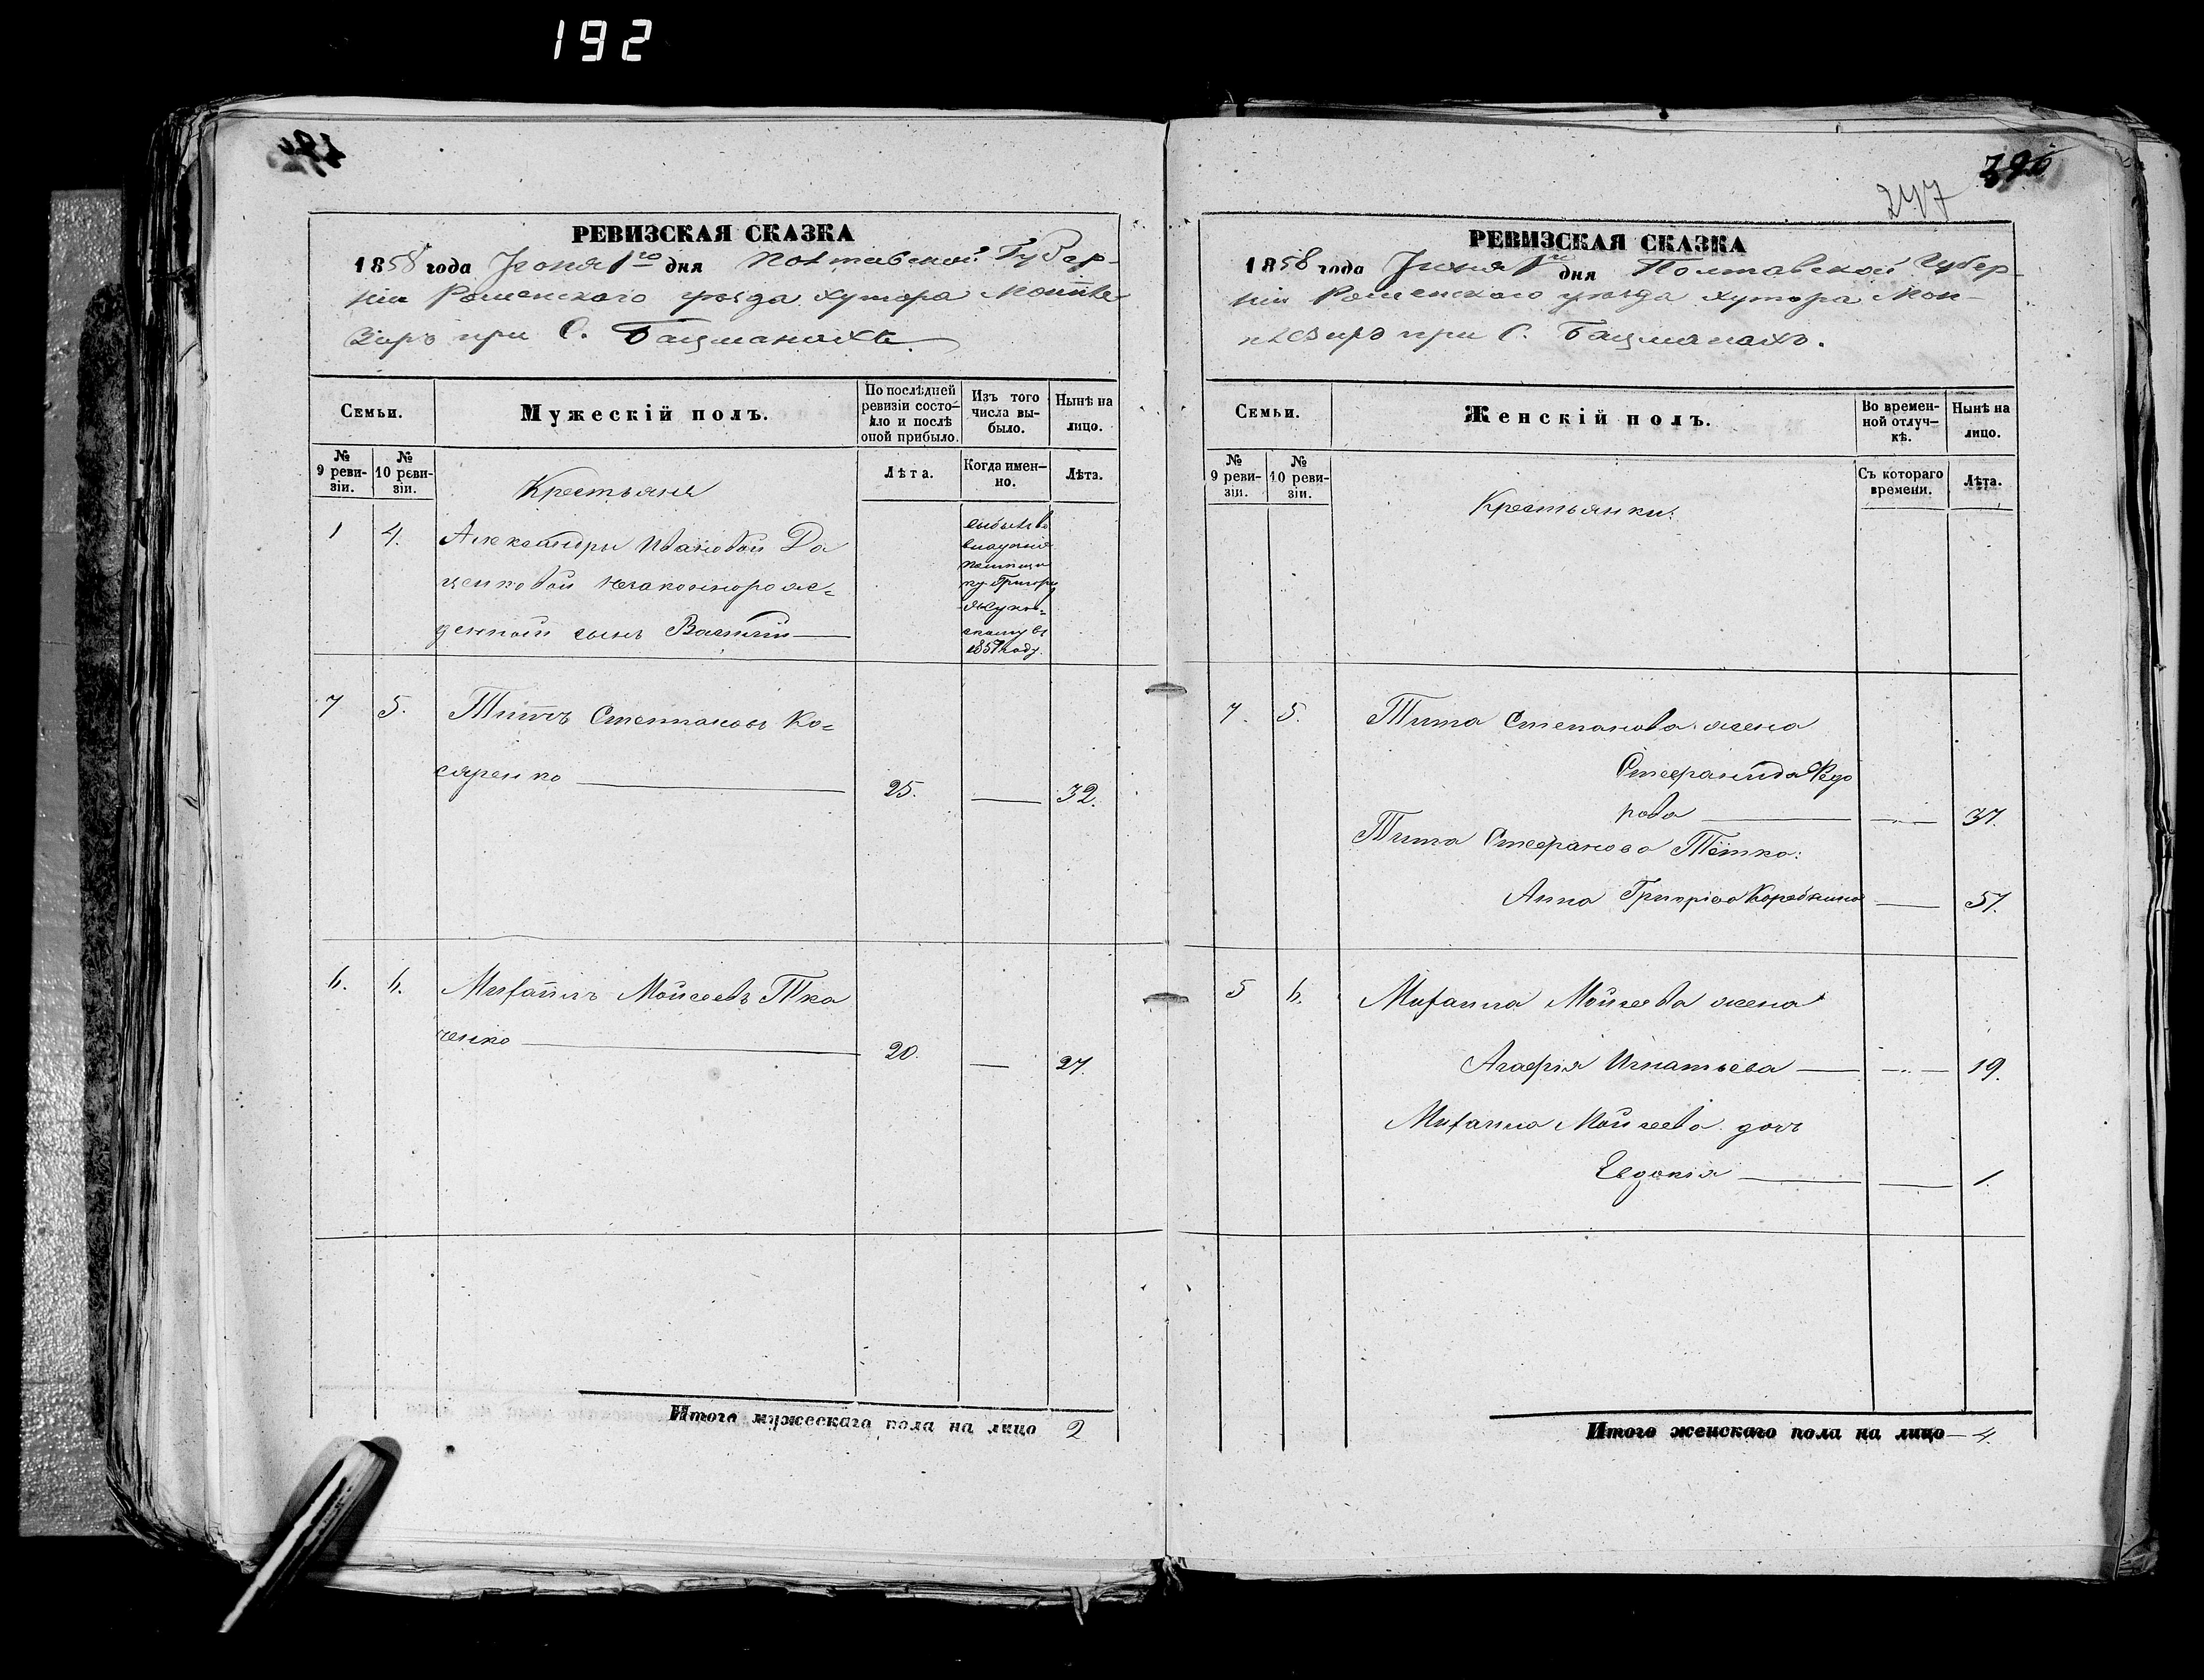 192
РЕВИЗСКАЯ СКАЗКА
1858 года Іюня 1го дня Полтавской Губер-
ніи Роменскаго уѣзда хутора Монпле
зиръ при С. Бацманахъ.
Семьи.
Мужескій полъ.
По послѣдней ревизіи состо-яло и послѣ оной прибыло.
Изъ того числа вы-было.
Нынѣ на лицо.
№ 9 реви-зіи.
№ 10 реви-зіи.
Крестьяне
Лѣта.
Когда имен-но.
Лѣта.
1 4. Александры Ивановой Да
ценковой незаконнорож=
денный сынъ Василій
выбылъ во
владѣніе
помѣщи
ку Григорію
Жуков=
скому въ
1857 году.
7 5. Титъ Степановъ Ко=
сяренко 25. 32.
6. 6. Михаилъ Мойсеевъ Тка
ченко 20. 27.
Итого мужескаго пола на лицо 2
247
РЕВИЗСКАЯ СКАЗКА
1858 года Іюня 1го дня Полтавской Губер-
ніи Роменскаго уѣзда хутора Мон-
плезиръ при С. Бацманахъ.
Семьи.
Женскій полъ.
Во времен-ной отлуч-кѣ.
Нынѣ на лицо.
№ 9 реви-зіи.
№ 10 реви-зіи.
Крестьянки:
Съ котораго времени.
Лѣта.
7. 5. Тита Степанова жена
Стефанида Федо
рова 37.
Тита Стефанова Тётка:
Анна Григорьева 57.
5 6. Михаила Мойсеева жена
Агафія Игнатьева 19.
Михаила Мойсеева дочь
Евдокія 1.
Итого женскаго пола на лицо 4.